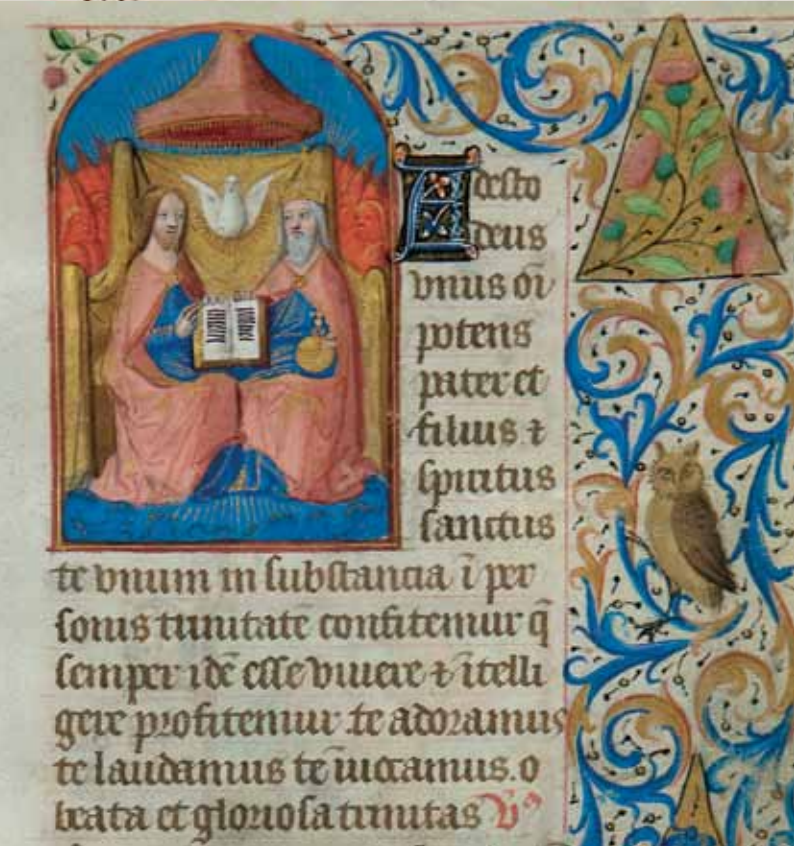 Adesto
deus
vnus oī
potens
pater et
filius ⁊
spiritus
sanctus
te vnum in substancia ī per
sonis trinitatē confitemur q̄
semper idē esse viuere ⁊ ītelli
gere profitemur te adoramus
te laudamus te īuocamus. o
beata et gloriosa trinitas V̄ꝰ